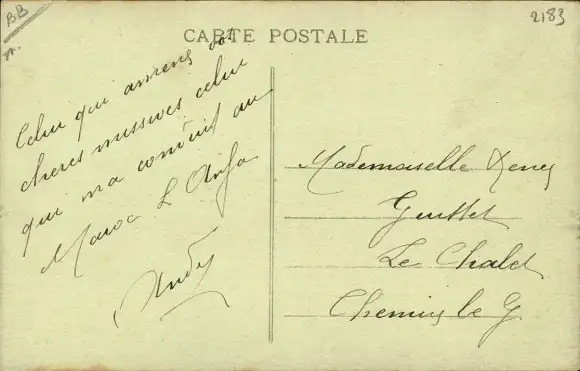 BB
2183
CARTE POSTALE
Celui qui amiens vos
cheres missives celui
qui m'a conduit au
Maroc L'Anfa
Andy
Mademoiselle Renée
Guittet
Le Chalet
Chemin le G